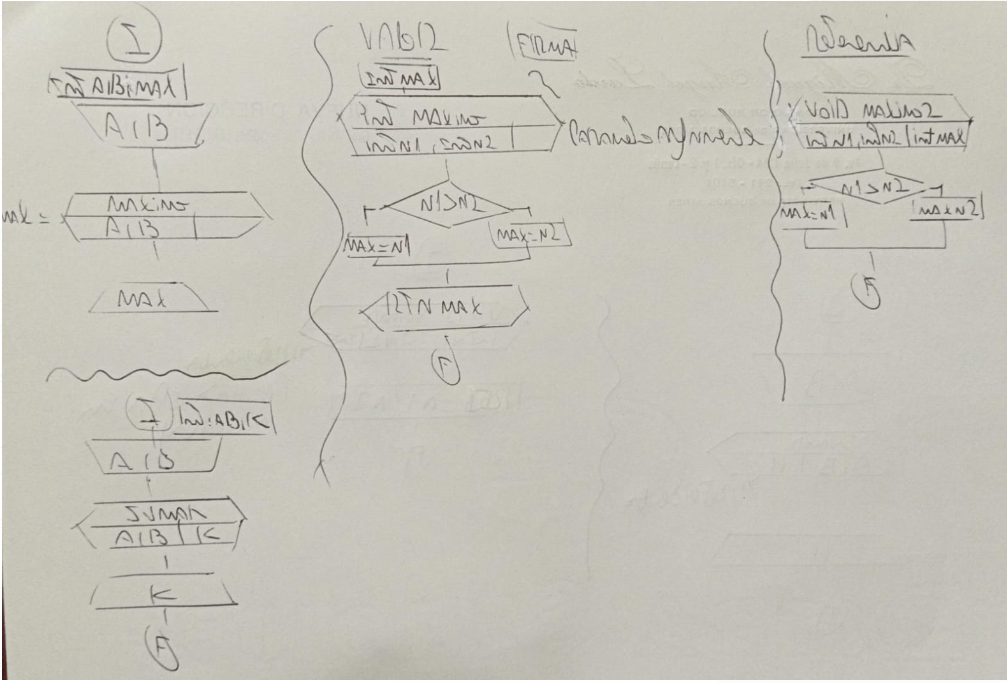 I
int A,B,MAX
A,B
MAX =
MAXIMO
A,B
MAX
I
INT: A,B,K
A,B
SUMAR
A,B | K
K
F
VALOR
FIRMA
INT MAX
INT MAXIMO
INT N1, INT N2
N1>N2
MAX=N1
MAX=N2
RTN MAX
F
Referencia
VOID MAXIMO2
INT N1, INT N2 | int MAX
N1>N2
MAX=N1
MAX N2
F